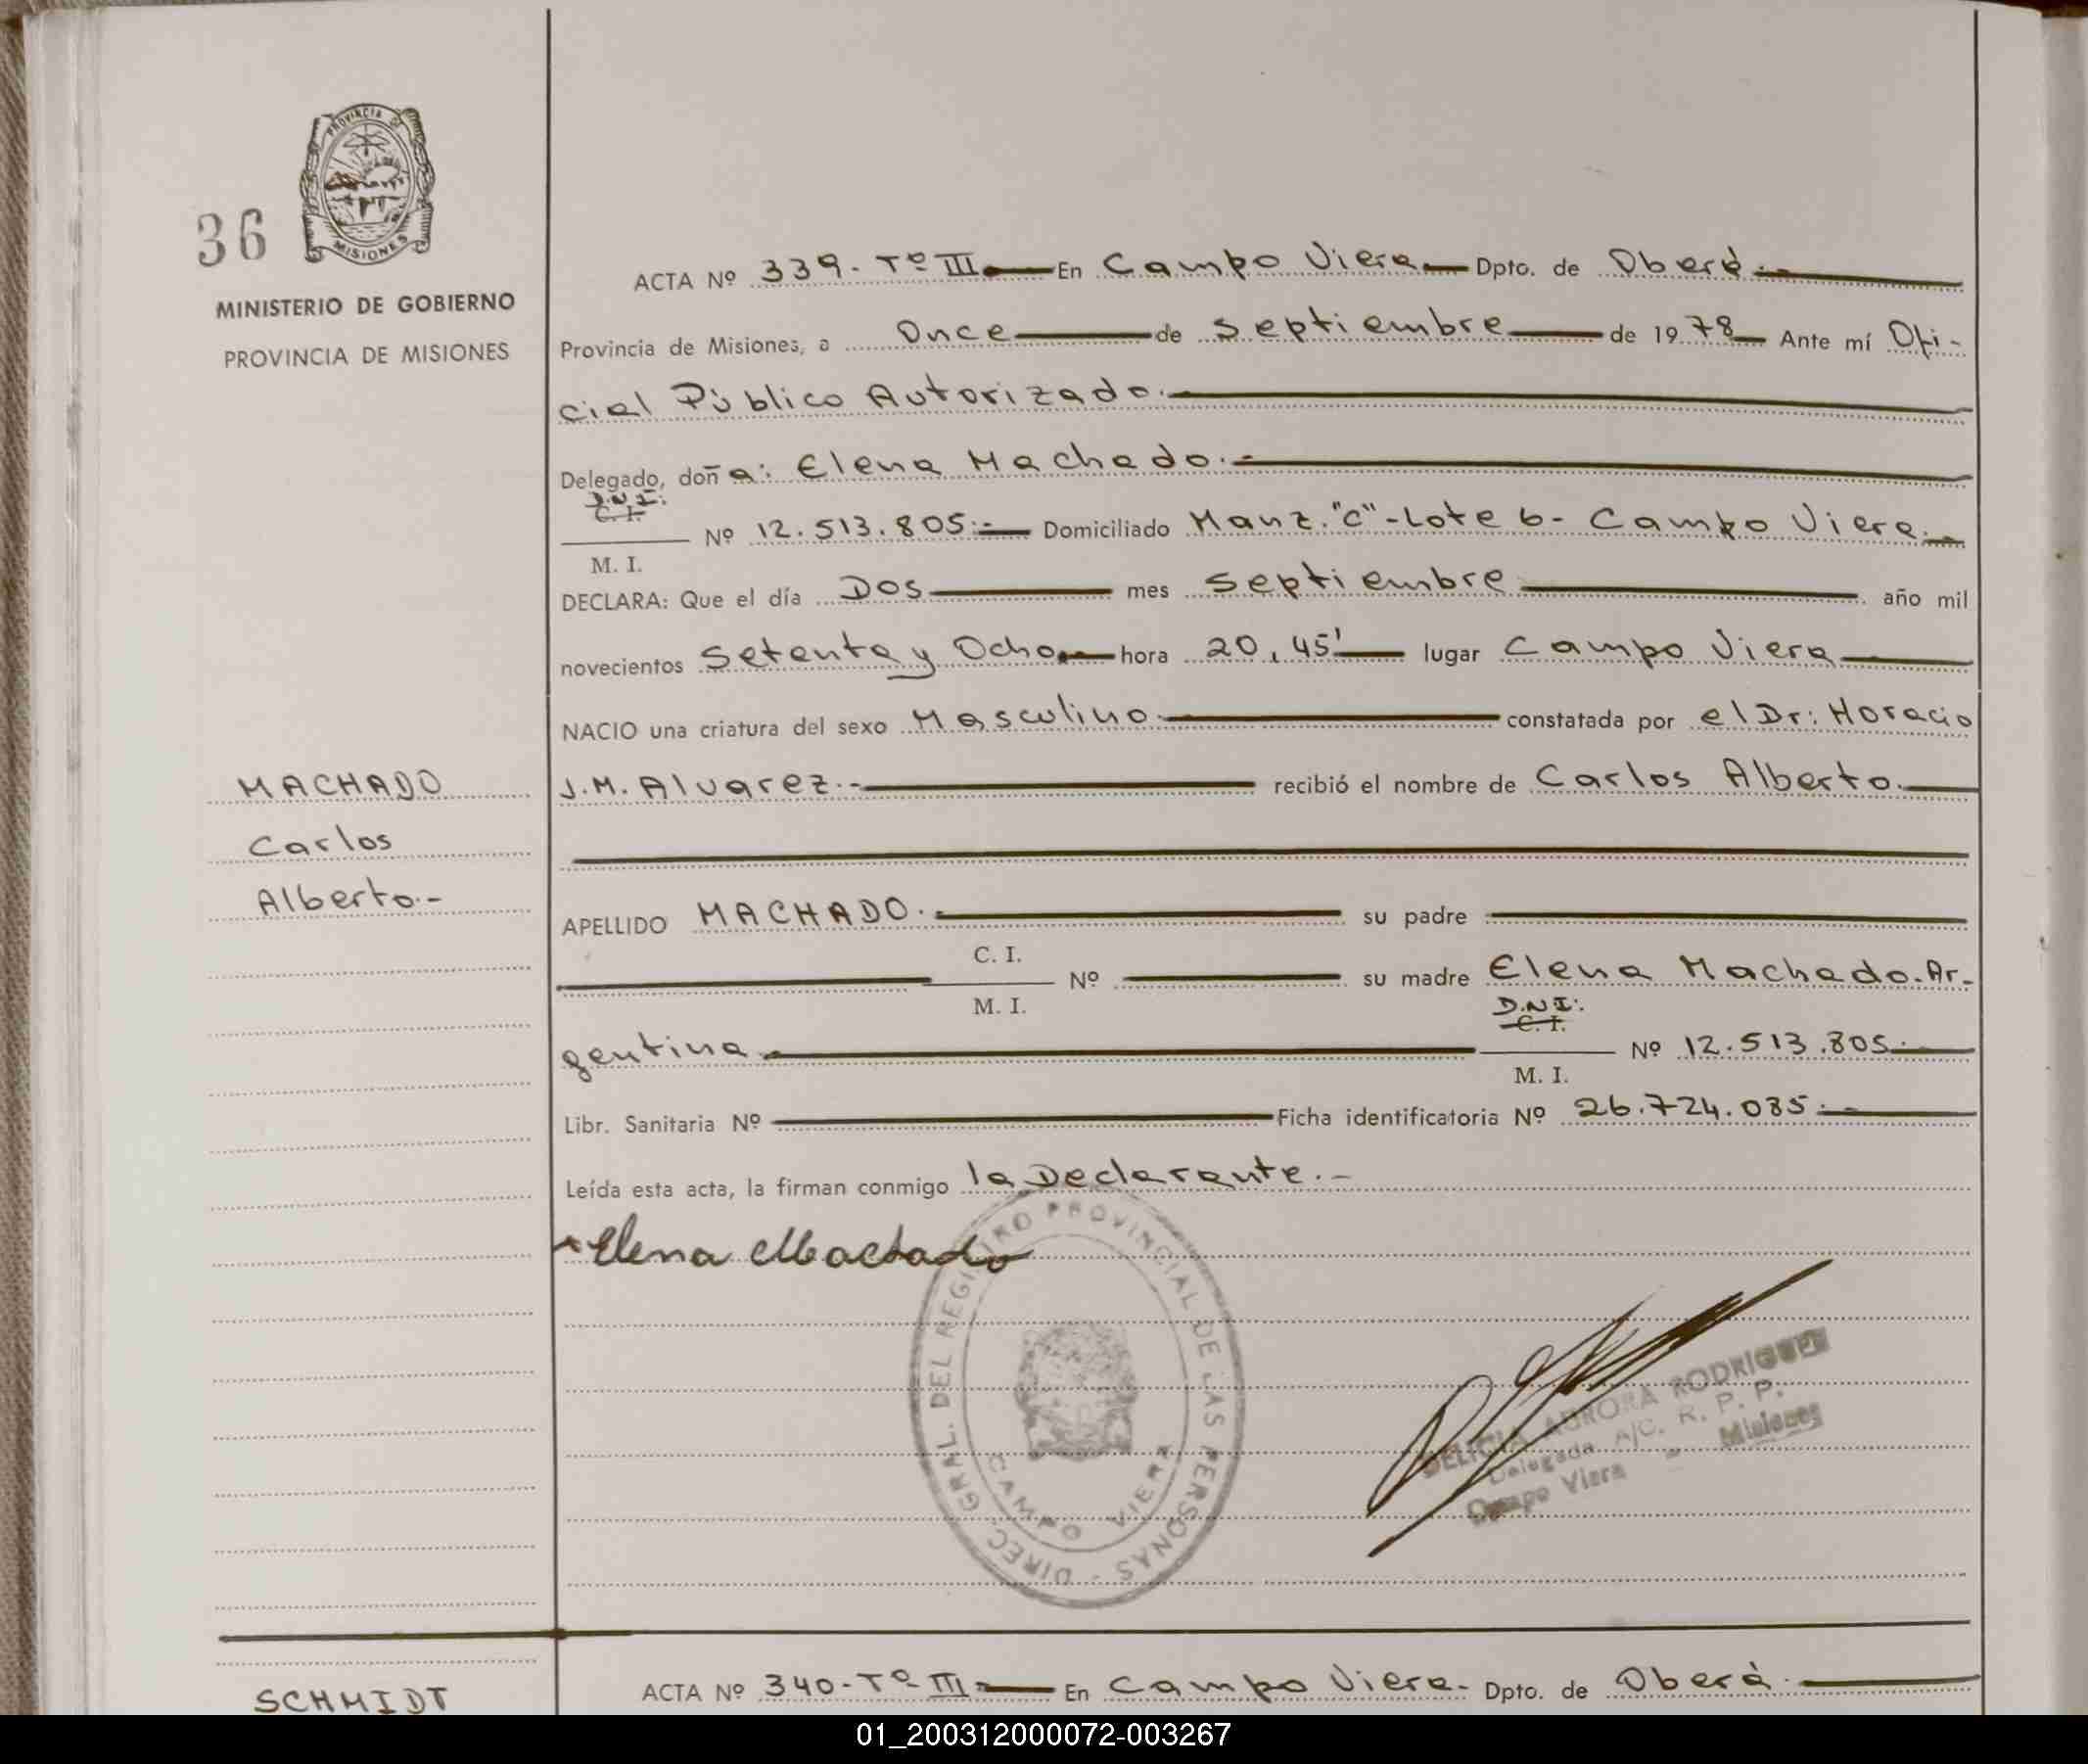 PROVINCIA DE
MISIONES
36
MINISTERIO DE GOBIERNO
PROVINCIA DE MISIONES
MACHADO
Carlos
Alberto.-
ACTA Nº 339- Tº III En Campo Viera Dpto. de Oberá.-
Provincia de Misiones, a Once de Septiembre de 1978 Ante mí Ofi-
cial Público Autorizado.-
Delegado, doña: Elena Machado.-
D.N.I:
C. I.
Nº 12.513.805:- Domiciliado Manz."C"-Lote 6- Campo Viera.-
M. I.
DECLARA: Que el día Dos mes Septiembre año mil
novecientos Setenta y Ocho hora 20,45' lugar Campo Viera
NACIO una criatura del sexo Masculino constatada por el Dr: Horacio
J.M. Alvarez.- recibió el nombre de Carlos Alberto.
APELLIDO MACHADO.- su padre
C. I.
Nº su madre Elena Machado.Ar-
M. I.
D.N.I:
C. I.
gentina Nº 12.513.805.-
M. I.
Libr. Sanitaria Nº Ficha identificatoria Nº 26.724.085.-
Leída esta acta, la firman conmigo la Declarante.-
Elena Machado
DIREC. GRAL. DEL REGISTRO PROVINCIAL DE LAS PERSONAS -
CAMPO VIERA
DELICIA AURORA RODRIGUEZ
Delegada A/C. R. P. P.
Campo Viera - Misiones
SCHMIDT
ACTA Nº 340-Tº III En Campo Viera- Dpto. de Oberá.
01_200312000072-003267